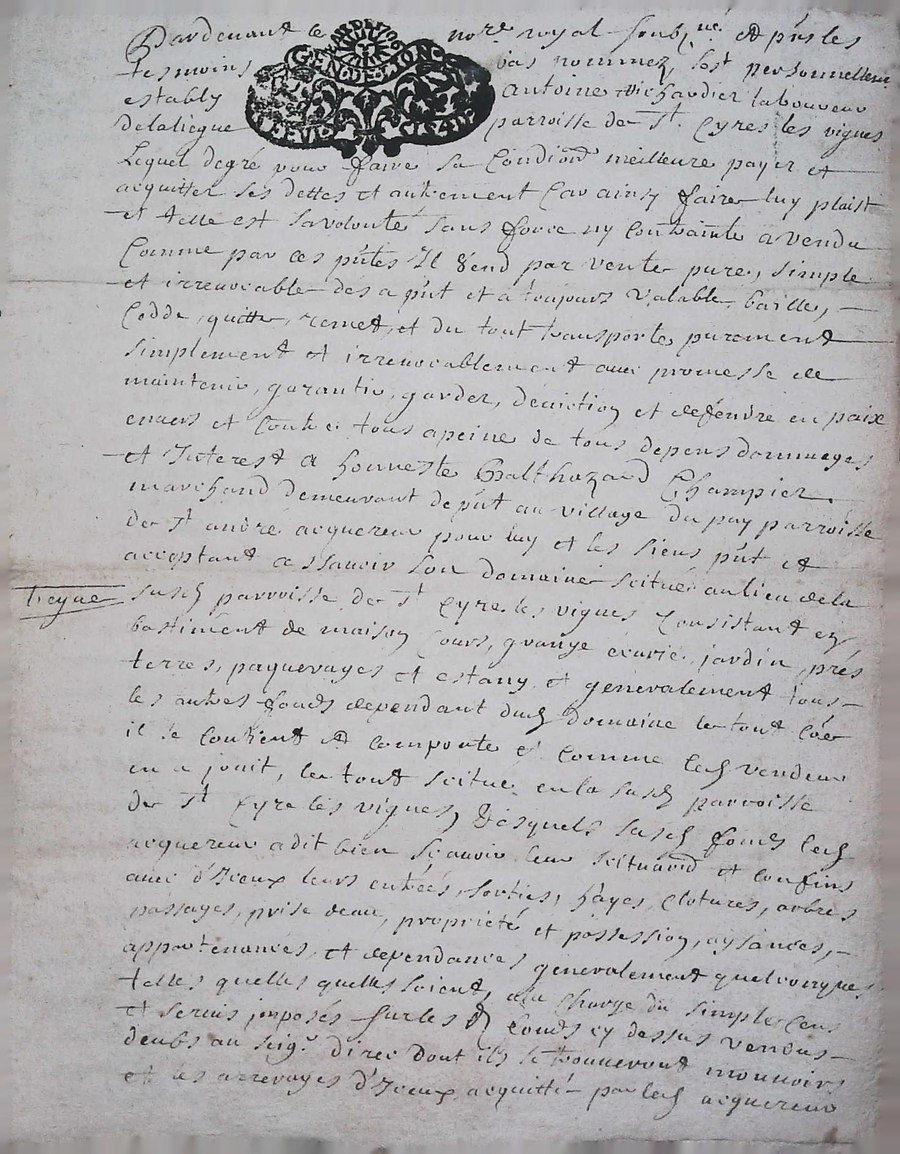 Pardevant le no.re royal soubz.né et pñts les
tesmoins bas nommez, s'est personnellem.
GEN DE LYON
establÿ Antoine Richardier laboureur
delaliegue parroisse de S.t Cyres les vignes
Lequel degré pour faire sa Condion meilleure payer et
acquitter ses dettes et autrement Car ainsy faire luy plaist
et telle est savolonté sans force ny contrainte a vendu
Comme par ces pñtes Il Vend par vente pure, simple
et irrevocable des a pñt et a toujours valable, baille,
Cedde, quitte, remet, et du tout transporte purement
simplement et irrevocablement avec promesse de
maintenir, garantir, garder, d'eviction et defendre en paix
envers et Contre tous apeine de tous depens dommages
et Interest A honneste Balthazard Champier
marchand demeurant depñt au village du puy parroisse
de S.t andré acquereur pour luy et les siens pñt et
acceptant ascavoir son domaine scitué aulieu dela
Liegue
susd parroisse de S.t Cyre les vignes Consistant en
bastiment de maison Cours, grange écurie, jardin, prés
terres, paquerages et estang, et generalement tous
les autres fonds dependant dud Domaine letout Côe
il se Contient et comporte et comme led vendeur
en a jouit, le tout scitué en la susd parroisse
de S.t Cyre les vignes, desquels susd fonds led
acquereur adit bien sçavoir leur scituaon et confins
avec d'Iceux leurs entrées, sorties, hayes, clotures, arbres
passages, prise deau, propriété et possession, aysances,
appartenances, et dependances generalement quelconques
telles quelles soient, ala Charge du simple Cens
et servis imposés sur les d fonds cy dessus vendus
deubs au seig.r direc dont ils se trouveront mouvoirs
et les arrerages d'Iceux acquitté par led acquereur